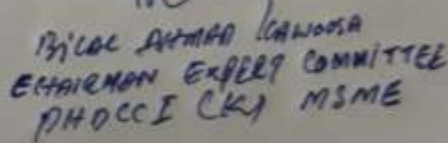 Bilal AHMAD KAWOOSA
CHAIRMAN EXPERT COMMITTEE
PHDCCI (K) MSME